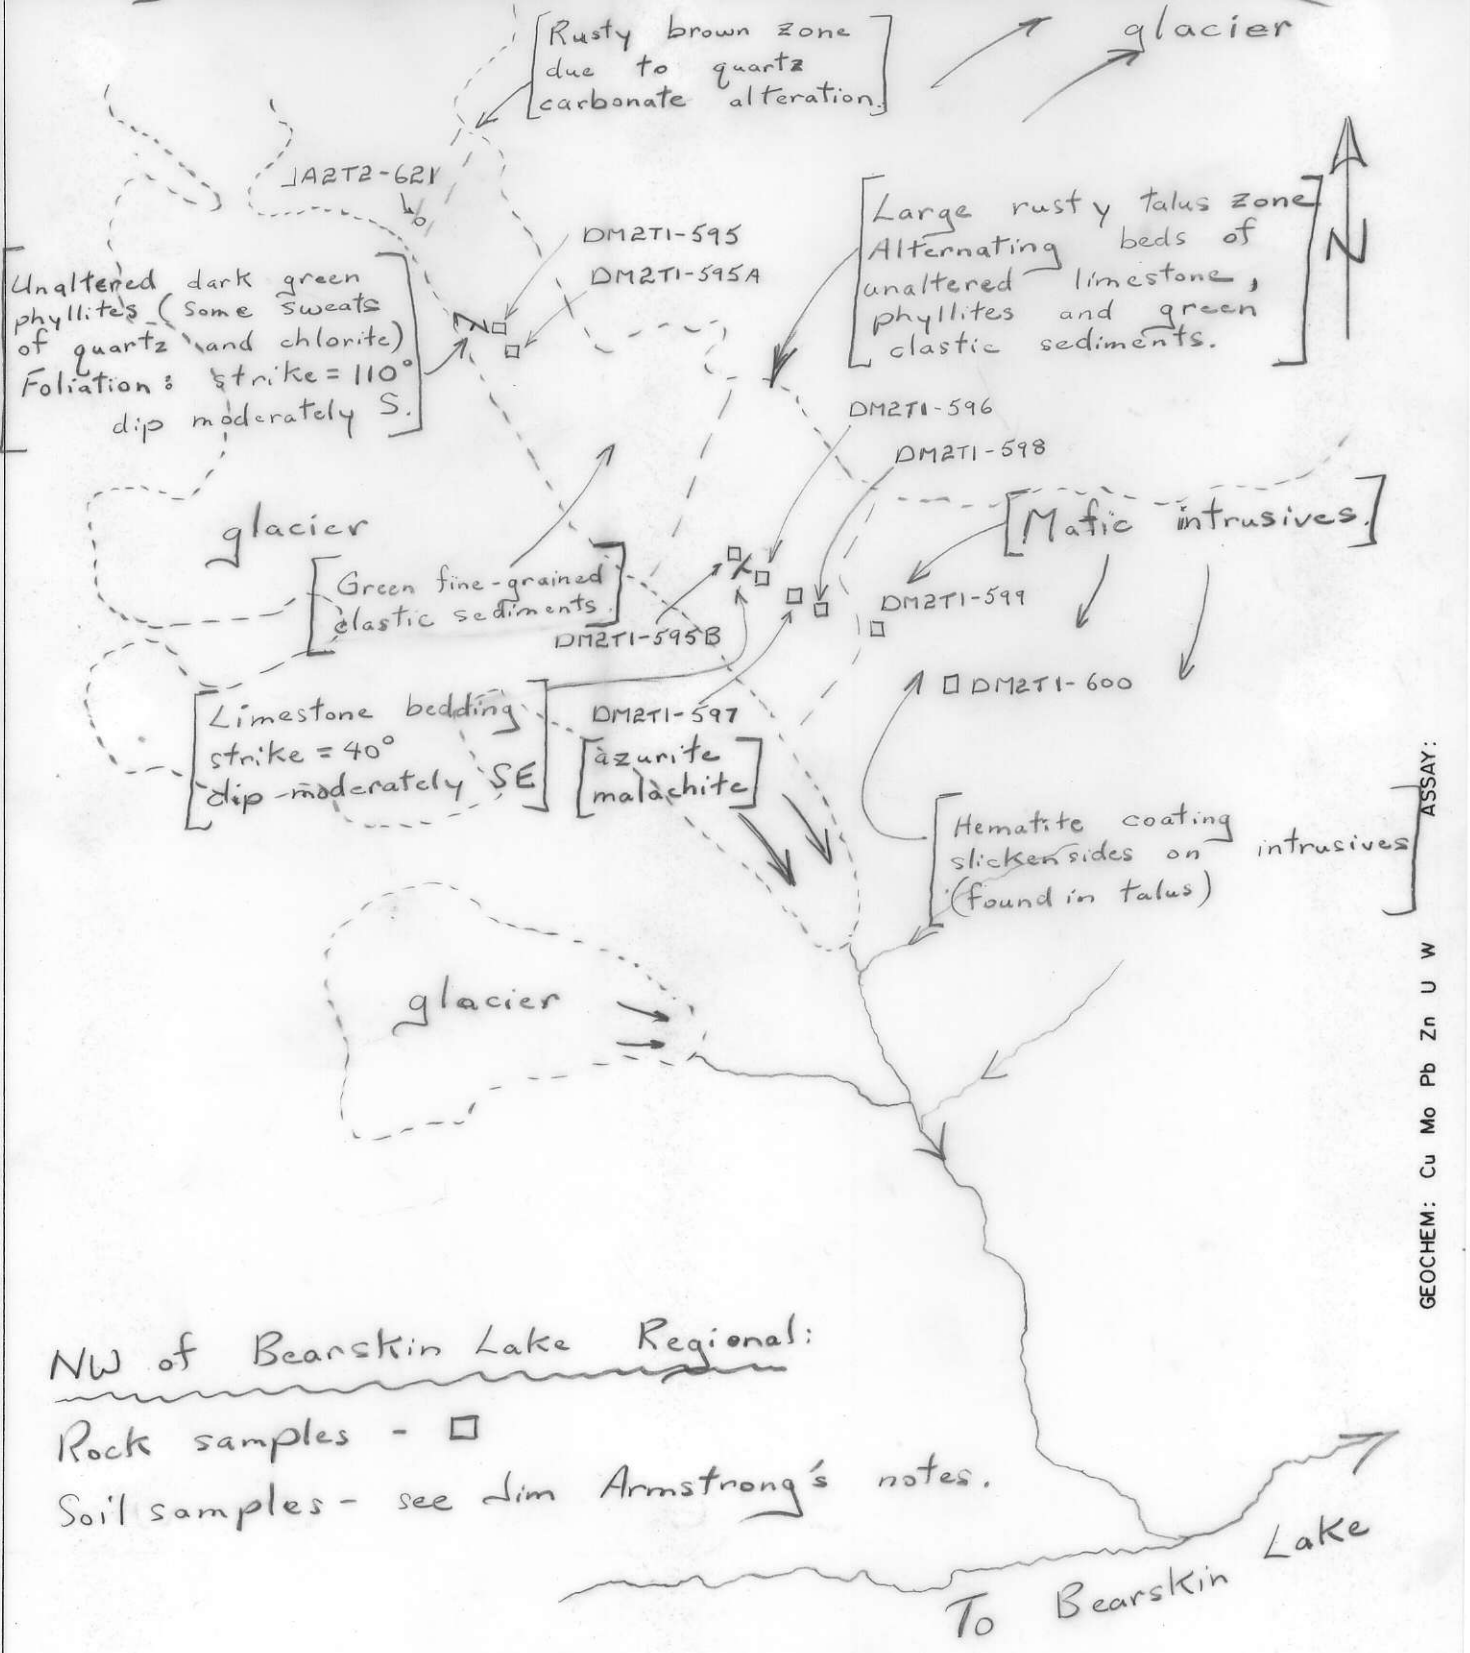 Rusty brown zone
due to quartz
carbonate alteration.
glacier
JA2T2-621
DM2T1-595
DM2T1-595A
Large rusty talus zone
Alternating beds of
unaltered limestone,
phyllites and green
clastic sediments.
N
Unaltered dark green
phyllites (some sweats
of quartz and chlorite)
Foliation: strike = 110°
dip moderately S.
DM2T1-596
DM2T1-598
glacier
Mafic intrusives.
Green fine-grained
clastic sediments.
DM2T1-599
DM2T1-595B
DM2T1-600
Limestone bedding
strike = 40°
dip-moderately SE
DM2T1-597
azurite
malachite
Hematite coating
slickensides on intrusives
(found in talus)
glacier
NW of Bearskin Lake Regional:
Rock samples -
Soil samples - see Jim Armstrong's notes.
To Bearskin Lake
GEOCHEM: Cu Mo Pb Zn U W ASSAY: